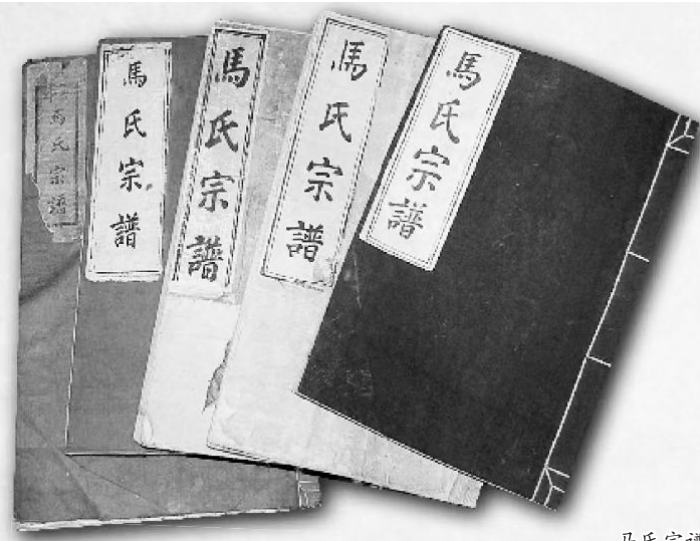 馬氏宗譜
馬氏宗譜
馬氏宗譜
馬氏宗譜
馬氏宗譜
马氏宗谱